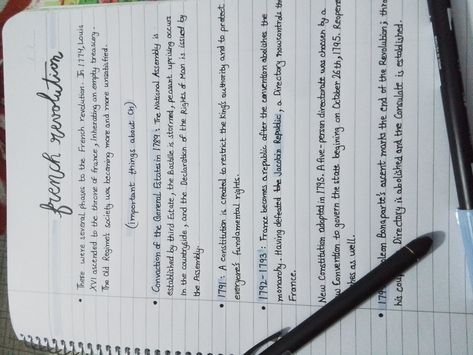 french revolution
• There were several phases to the French revolution. In 1774, Louis
XVI ascended to the throne of france, inheriting an empty treasury.
The old Regime's society was becoming more and more unsatisfied.
(Important things about it)
• Convocation of the General Estates in 1789: The National Assembly is
established by third Estate, the Bastille is stormed, peasant uprising occurs
in the countryside, and the Declaration of the Rights of Man is issued by
the Assembly.
• 1791: A constitution is created to restrict the King's authority and to protect
everyone's fundamental rights.
• 1792-1793: France becomes a republic after the convention abolishes the
monarchy. Having defeated the Jacobin Republic, a Directory now controls
France.
New Constitution adopted in 1795. A five-person directorate was chosen by a
Convention to govern the state begining on October 26th, 1795.
as well.
• Bonaparte's ascent marks the End of the Revolution; the
his Directory is abolished and the Consulate is established.